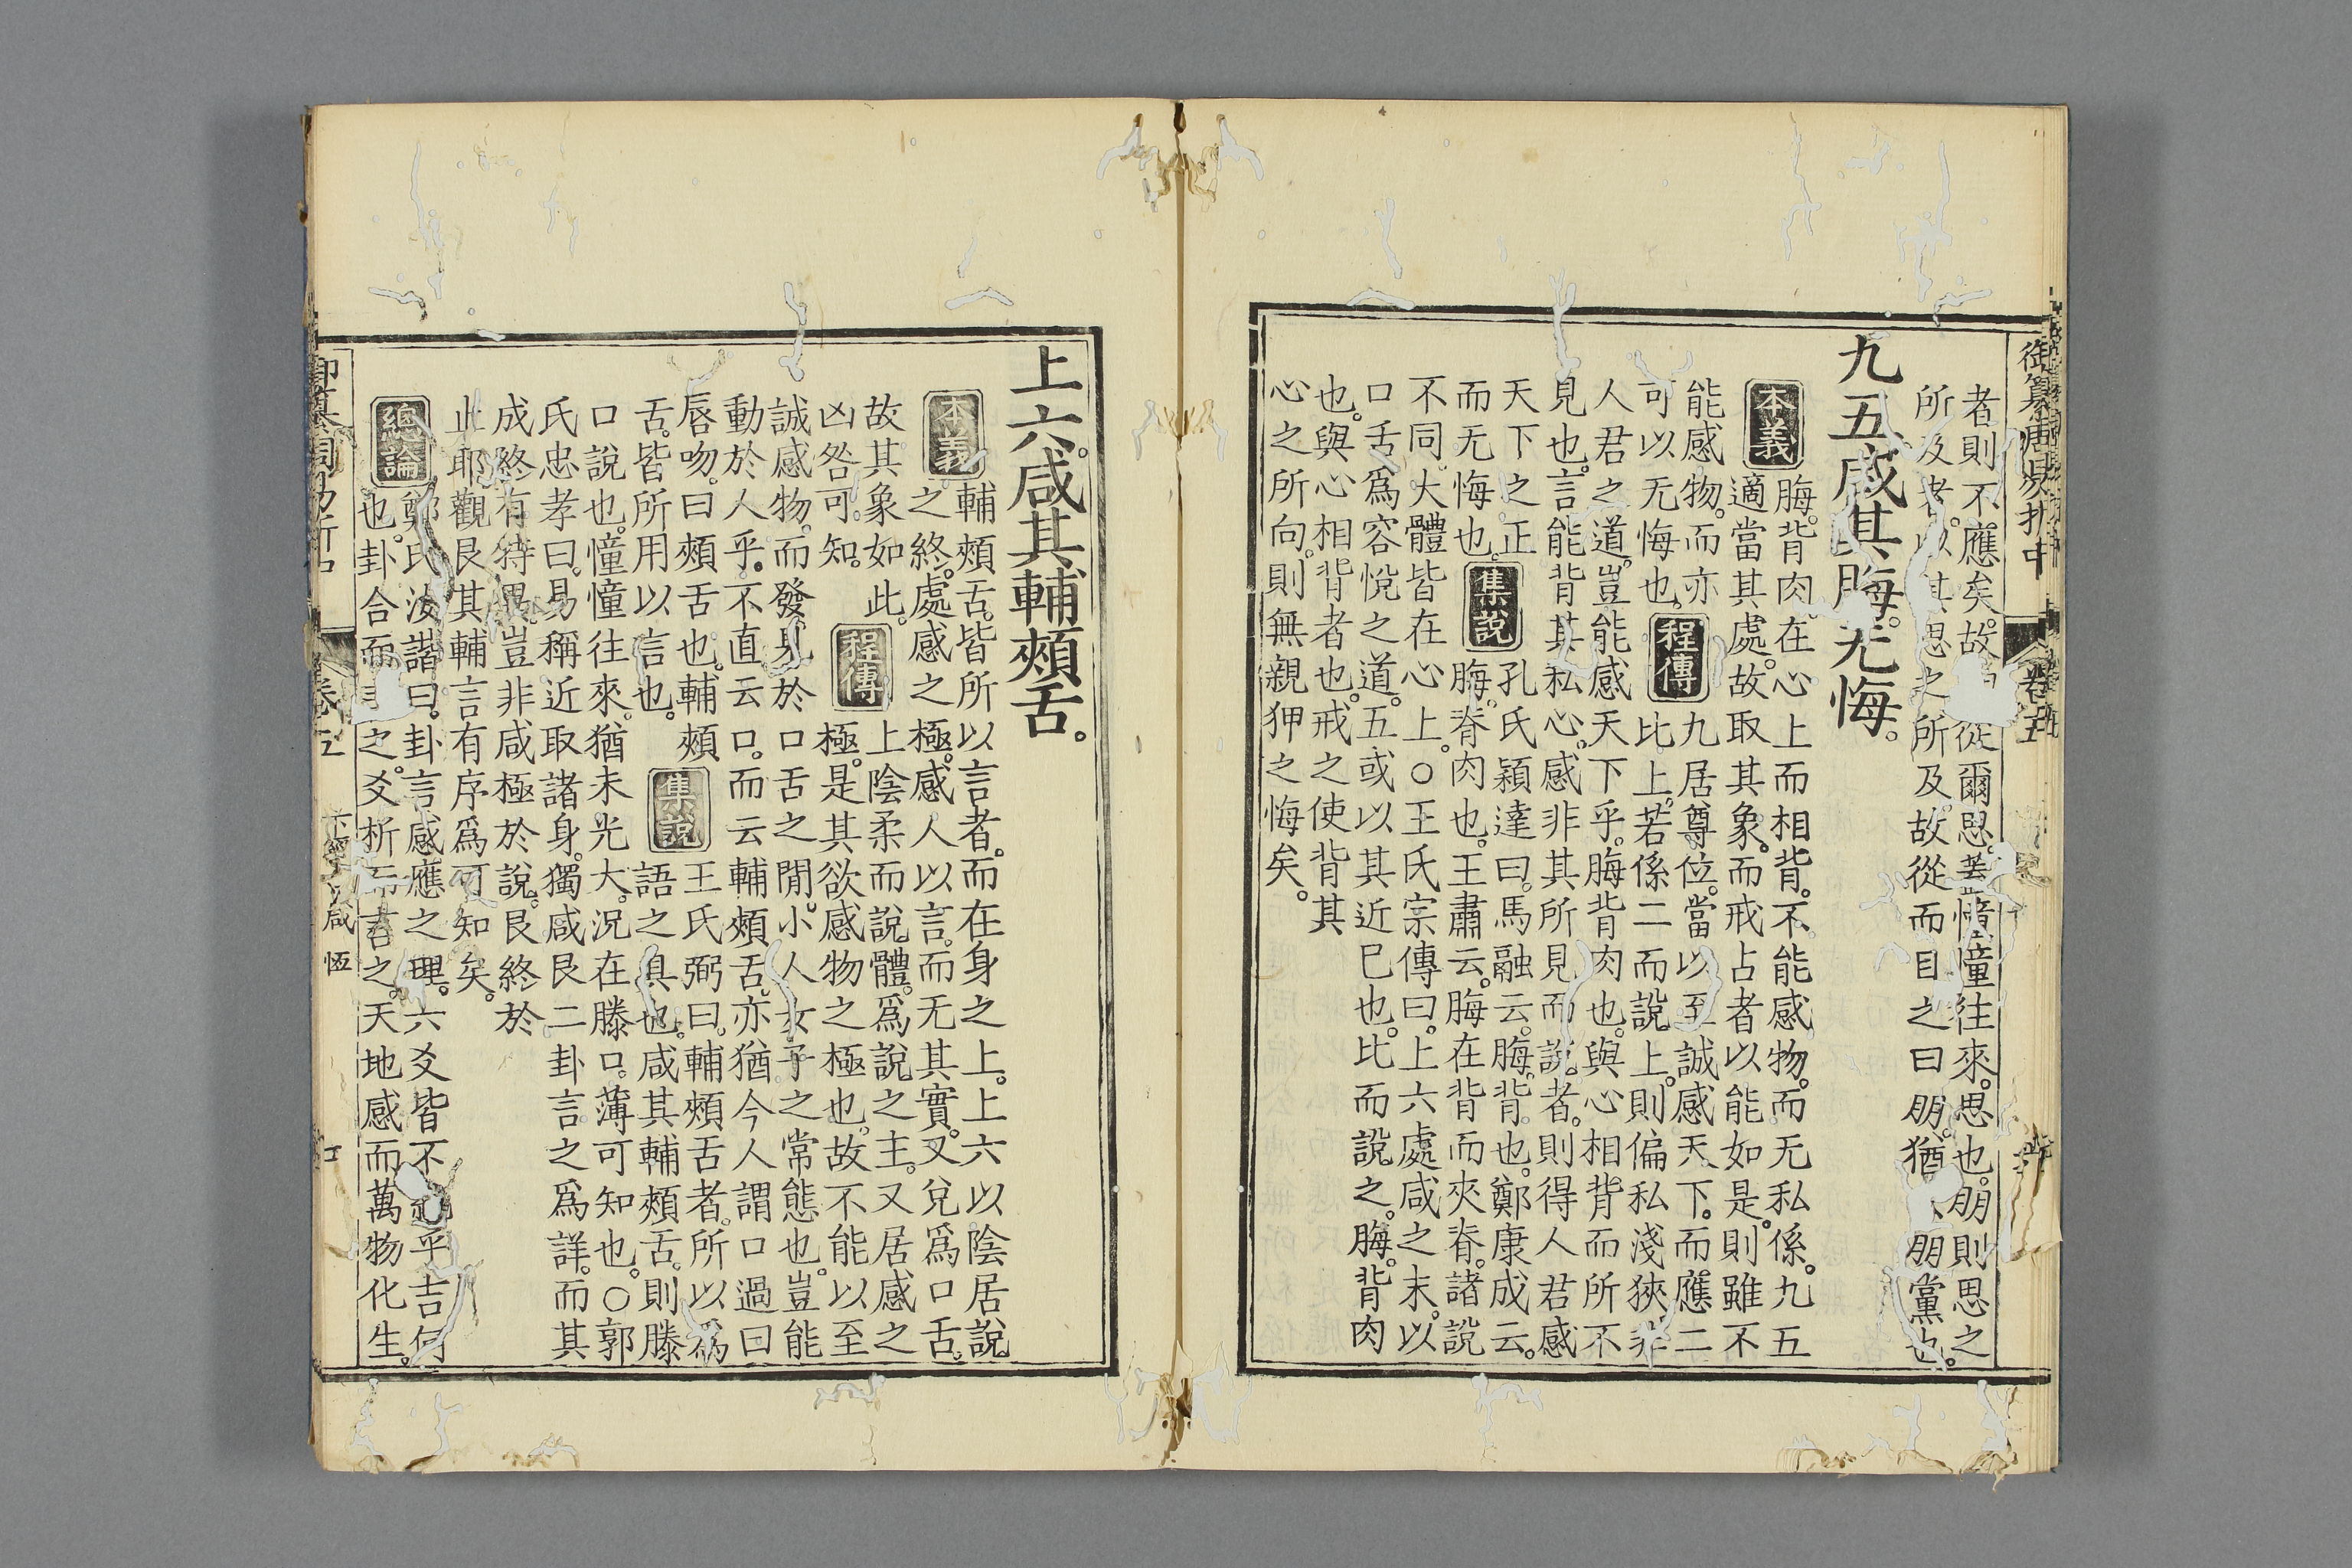 御纂周易折中
卷五
者則不應矣。故 從爾思。蓋憧憧往來。思也。朋則思之
所及者。以其思之所及。故從而目之曰朋。猶 朋黨也。
九五。咸其脢。无悔。
本義
脢。背肉。在心上而相背。不能感物。而无私係。九五
適當其處。故取其象。而戒占者以能如是。則雖不
能感物。而亦
可以无悔也。
程傳
九居尊位。當以至誠感天下。而應二
比上。若係二而說上。則偏私淺狹。非
人君之道。豈能感天下乎。脢背肉也。與心相背。而所不
見也。言能背其私心。感非其所見而說者。則得人君感
天下之正
而无悔也。
集說
孔氏穎達曰。馬融云。脢。背也。鄭康成云。
脢。脊肉也。王肅云。脢在背而夾脊。諸說
不同。大體皆在心上。○王氏宗傳曰。上六處咸之末。以
口舌爲容悅之道。五或以其近已也。比而說之。脢。背肉
也。與心相背者也。戒之使背其
心之所向。則無親狎之悔矣。
上六。咸其輔頰舌。
本義
輔頰舌。皆所以言者。而在身之上。上六以陰居說
之終。處感之極。感人以言。而无其實。又兌爲口舌。
故其象如此。
凶咎可知。
程傳
上陰柔而說體。爲說之主。又居感之
極。是其欲感物之極也。故不能以至
誠感物。而發見於口舌之閒。小人女子之常態也。豈能
動於人乎。不直云口。而云輔頰舌。亦猶今人謂口過曰
唇吻。曰頰舌也。輔頰
舌。皆所用以言也。
集說
王氏弼曰。輔頰舌者。所以爲
語之具也。咸其輔頰舌。則滕
口說也。憧憧往來。猶未光大。況在滕口。薄可知也。○郭
氏忠孝曰。易稱近取諸身。獨咸艮二卦言之爲詳。而其
成終有特異。豈非咸極於說。艮終於
止耶。觀艮其輔言有序爲可知矣。
總論
鄭氏汝諧曰。卦言感應之理。六爻皆不純乎吉。何
也。卦合而言之。爻析而言之。天地感而萬物化生。
御纂周易折中
卷五
下經 咸 恆